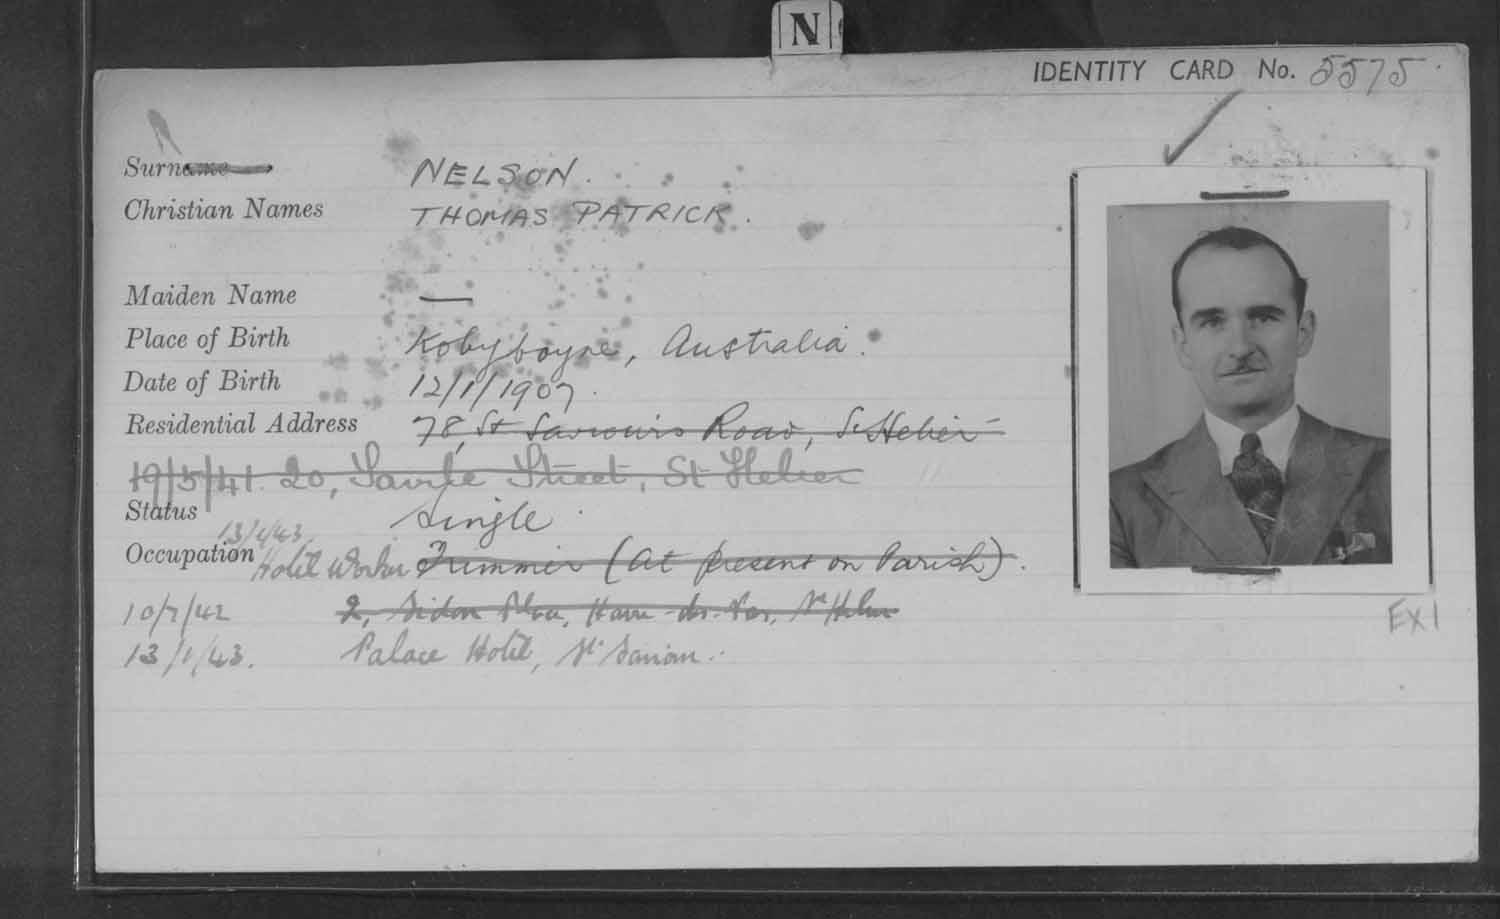 N
IDENTITY CARD No. 5575
Surname NELSON.
Christian Names THOMAS PATRICK.
Maiden Name —
Place of Birth Kobyboyne, Australia.
Date of Birth 12/1/1907.
Residential Address 78, St Saviours Road, St Helier
19/5/41. 20, Savile Street, St Helier
Status Single
13/1/43.
Occupation Hotel Worker Trimmer (At present on Parish).
10/7/42 2, Place, Havre-des-Pas, St Helier
13/1/43. Palace Hotel, St Saviour.
EX1